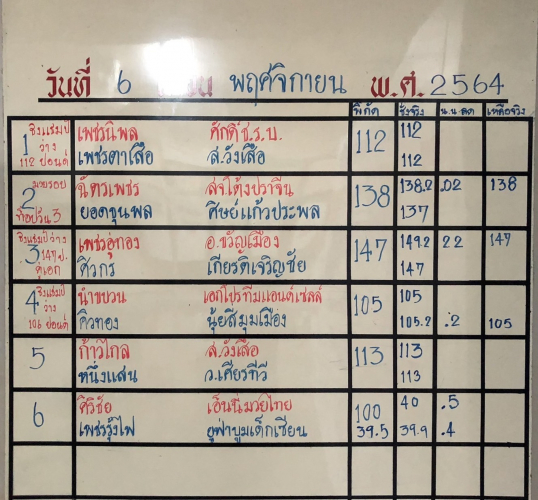 วันที่ 6 เดือน พฤศจิกายน พ.ศ. 2564
พิกัด ชั่งจริง น.น.ลด เหลือจริง
1 ชิงแชมป์ว่าง 112 ปอนด์
เพชรนิพล ศักดิ์ ช.ร.บ. 112 112
เพชรตาเสือ ส.วังเสือ 112
2 มวยรอง ท้อปวัน 3
ฉัตรเพชร สจ.โต้งปราจีน 138 138.2 .02 138
ยอดขุนพล ศิษย์แก้วประพล 137
3 ชิงแชมป์ว่าง 147 ป. คู่เอก
เพชรอู่ทอง อ.ขวัญเมือง 147 149.2 22 147
ศิวกร เกียรติเจริญชัย 147
4 ชิงแชมป์ว่าง 106 ปอนด์
นำขบวน เอกโปรทีมแอนด์เซลล์ 105 105
คิวทอง นุ้ยสีมุมเมือง 105.2 .2 105
5 ก้าวไกล ส.วังเสือ 113 113
หนึ่งแสน ว.เศียรทีวี 113
6 ศิริชัย เอ็นนี่มวยไทย 100 40 .5
เพชรรุ้งไฟ ยูฟ่าบูมเด็กเซียน 39.5 39.9 .4